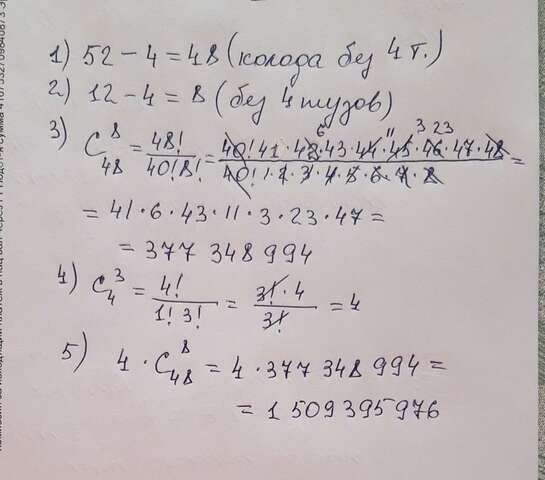 1) 52 - 4 = 48 (колода без 4 т.)
2) 12 - 4 = 8 (без 4 тузов)
3) C₄₈⁸ = 48! / 40! 8! = 40! 41 · 42 · 43 · 44 · 45 · 46 · 47 · 48 / 40! 1 · 2 · 3 · 4 · 5 · 6 · 7 · 8 =
6 11 3 23
= 41 · 6 · 43 · 11 · 3 · 23 · 47 =
= 377 348 994
4) C₄³ = 4! / 1! 3! = 3! · 4 / 3! = 4
5) 4 · C₄₈⁸ = 4 · 377 348 994 =
= 1 509 395 976